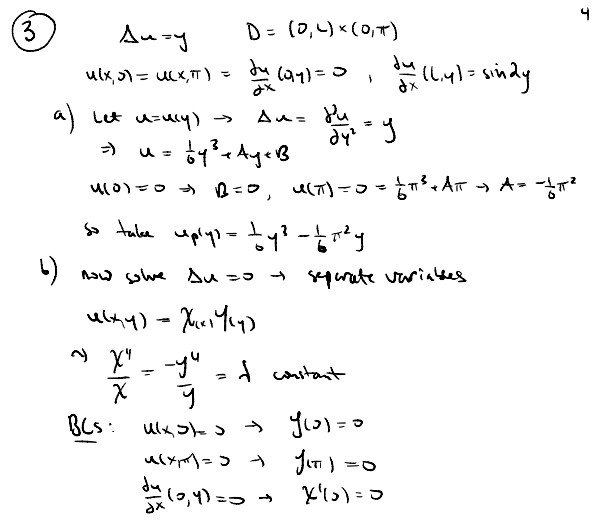 4
③ Δu = y D = (0,L)×(0,π)
u(x,0) = u(x,π) = ∂u/∂x (0,y) = 0 , ∂u/∂x (L,y) = sin2y
a) Let u=u(y) → Δu = ∂²u/∂y² = y
⇒ u = 1/6 y³ + Ay + B
u(0)=0 ⇒ B=0, u(π)=0 = 1/6 π³ + Aπ → A = -1/6 π²
so take u_p(y) = 1/6 y³ - 1/6 π² y
b) now solve Δu = 0 → separate variables
u(x,y) = X(x) Y(y)
⇝ X''/X = -Y''/Y = λ constant
BCs: u(x,0)=0 → Y(0)=0
u(x,π)=0 → Y(π)=0
∂u/∂x (0,y)=0 → X'(0)=0